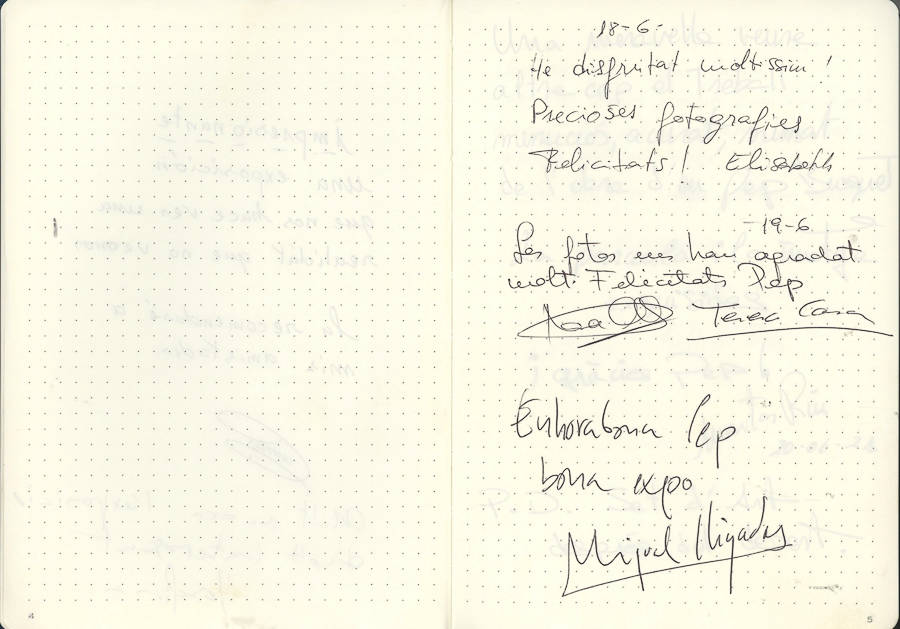 18-6-
He disfrutat moltissim!
Precioses fotografies
Felicitats! Elisabeth
-19-6
Les fotos ens han agradat
molt. Felicitats Pep
Teresa Casa
Enhorabona Pep
bona expo
Miguel
4
5